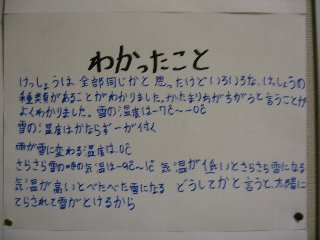 わかったこと
けっしょうは、全部同じかと思ったけどいろいろな、けっしょうの
種類があることがわかりました。かたまりちがちがうと言うことが
よくわかりました。雪の温度は-7℃~-0℃
雪の温度はかならず-が付く
雨が雪に変わる温度は、0℃
さらさら雪の時の気温は-9℃~ 気温が低いとさらさら雪になる
気温が高いとべたべた雪になる どうしてかと言うと、太陽に
てらされて雪がとけるから